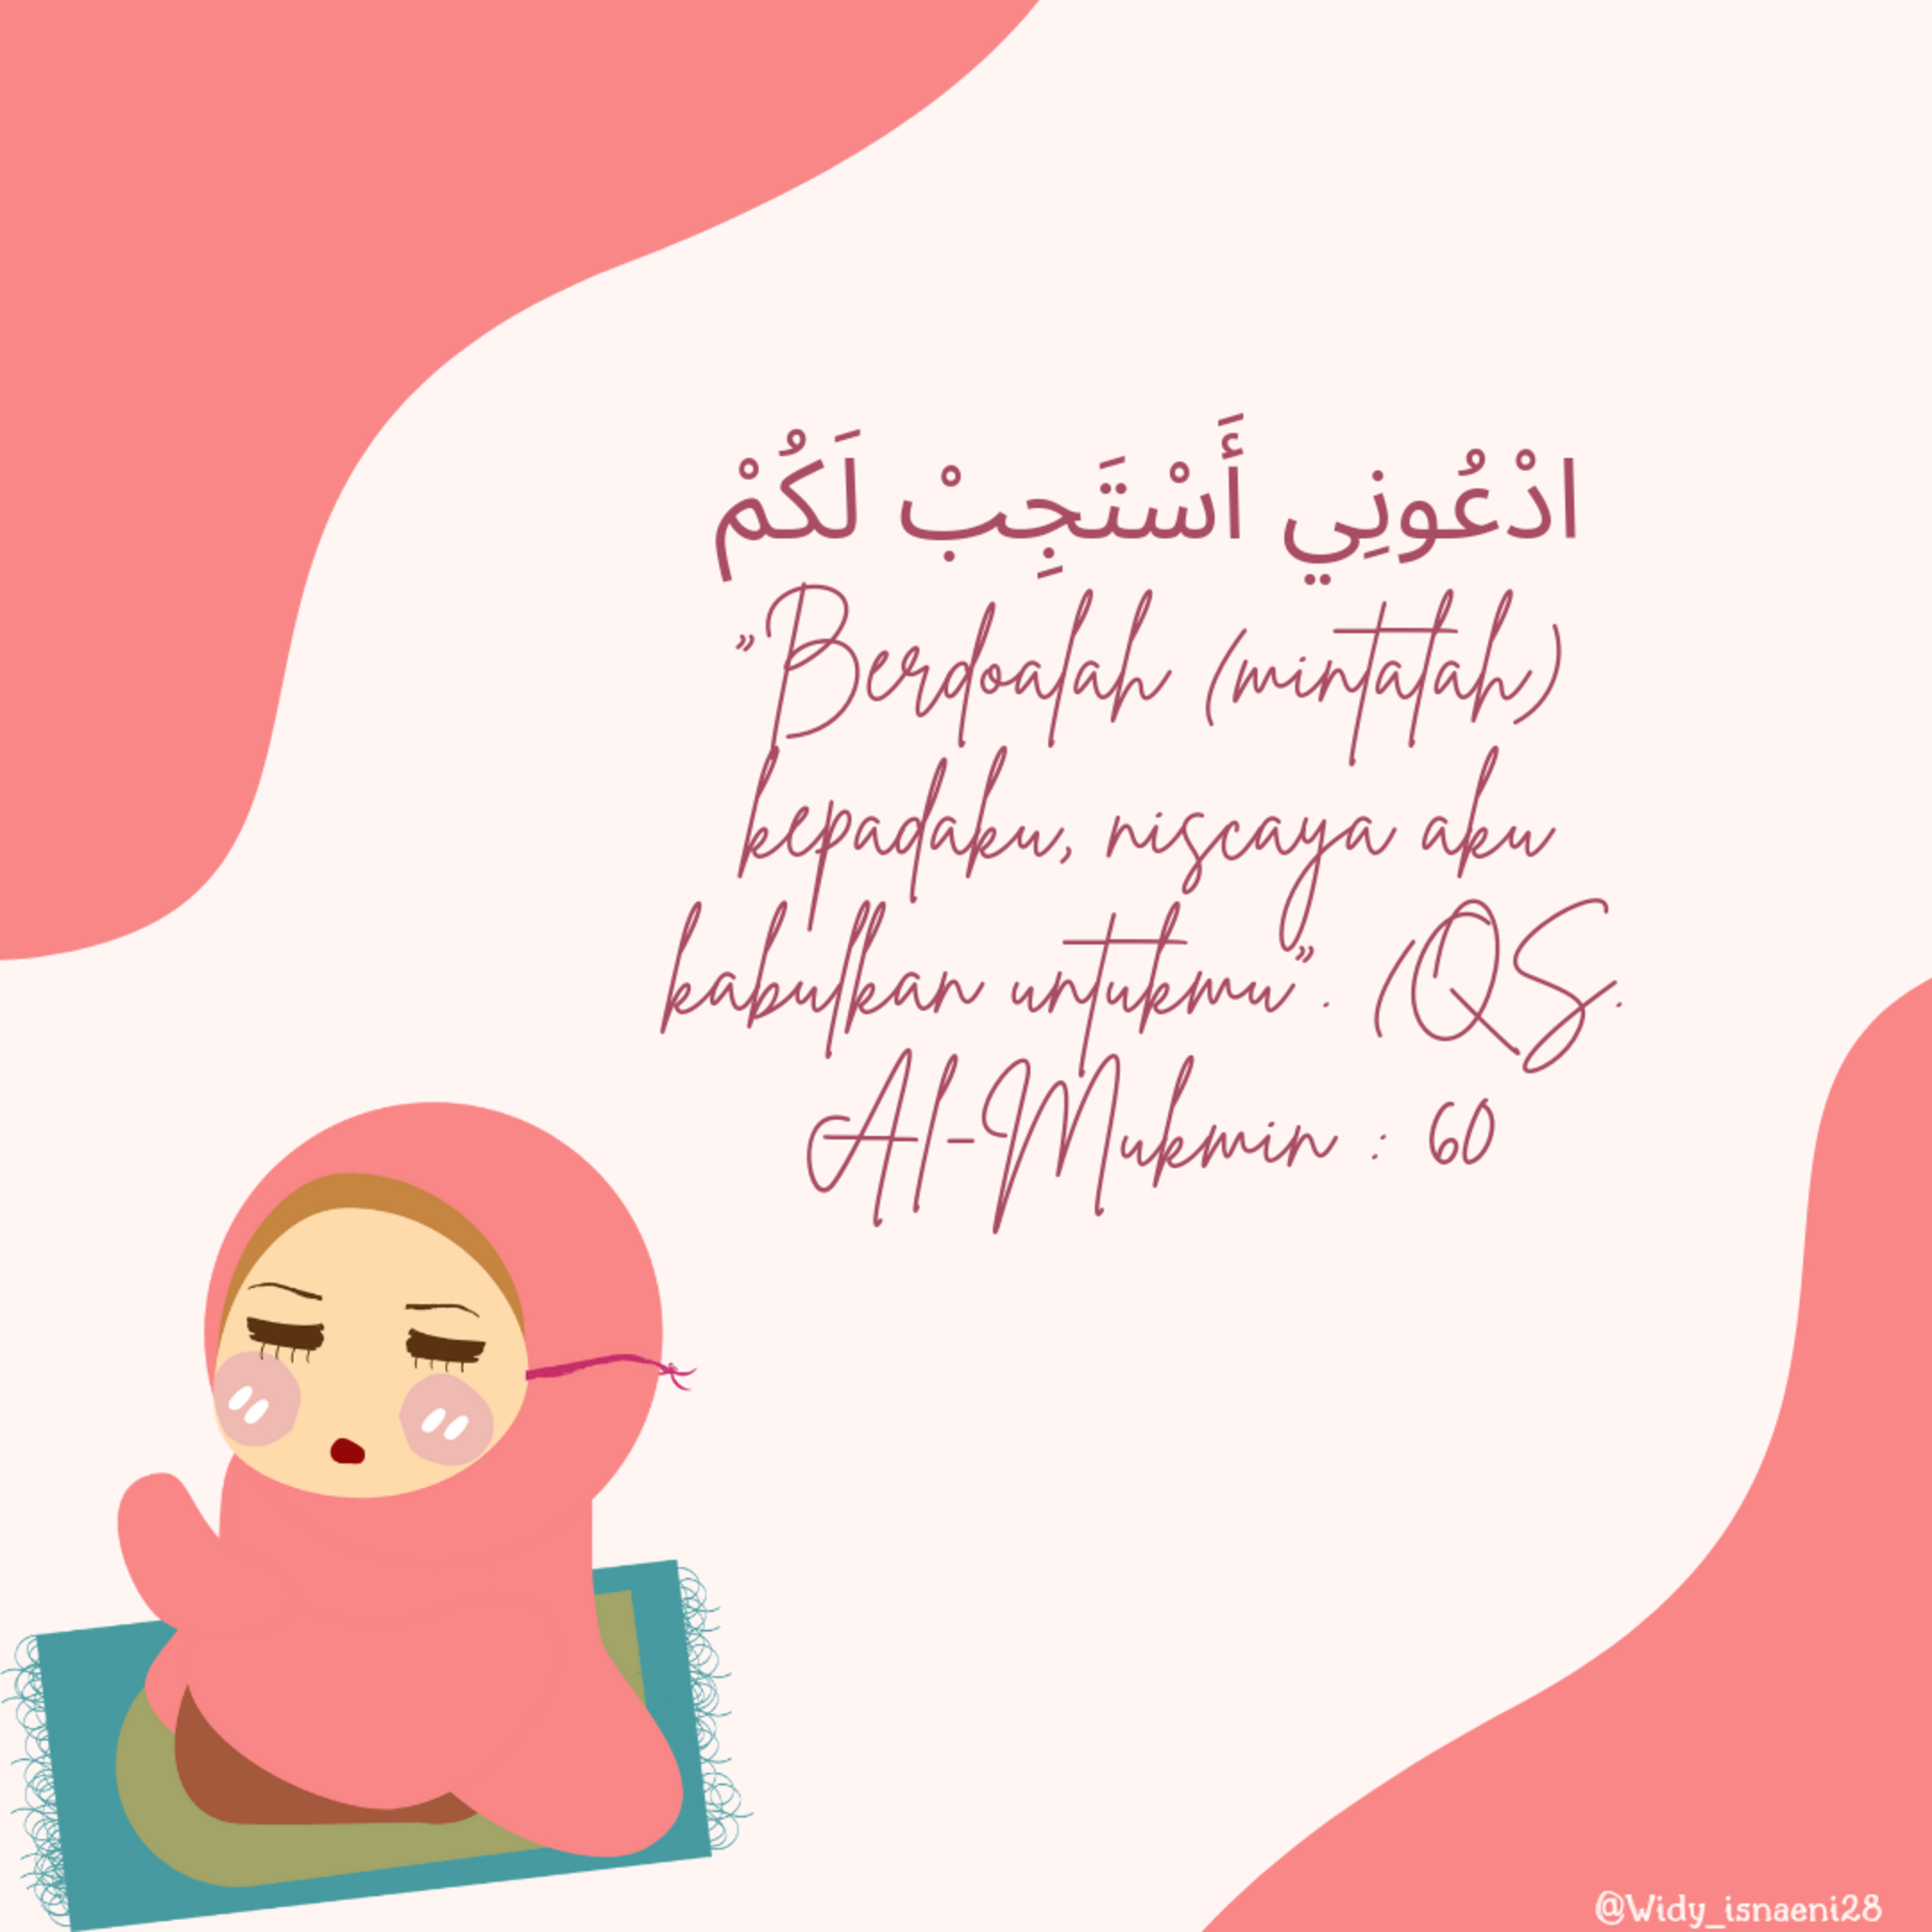 ادْعُونِي أَسْتَجِبْ لَكُمْ
"Berdoalah (mintalah)
kepadaku, niscaya aku
kabulkan untukmu". (QS.
Al-Mukmin : 60
@Widy_isnaeni28